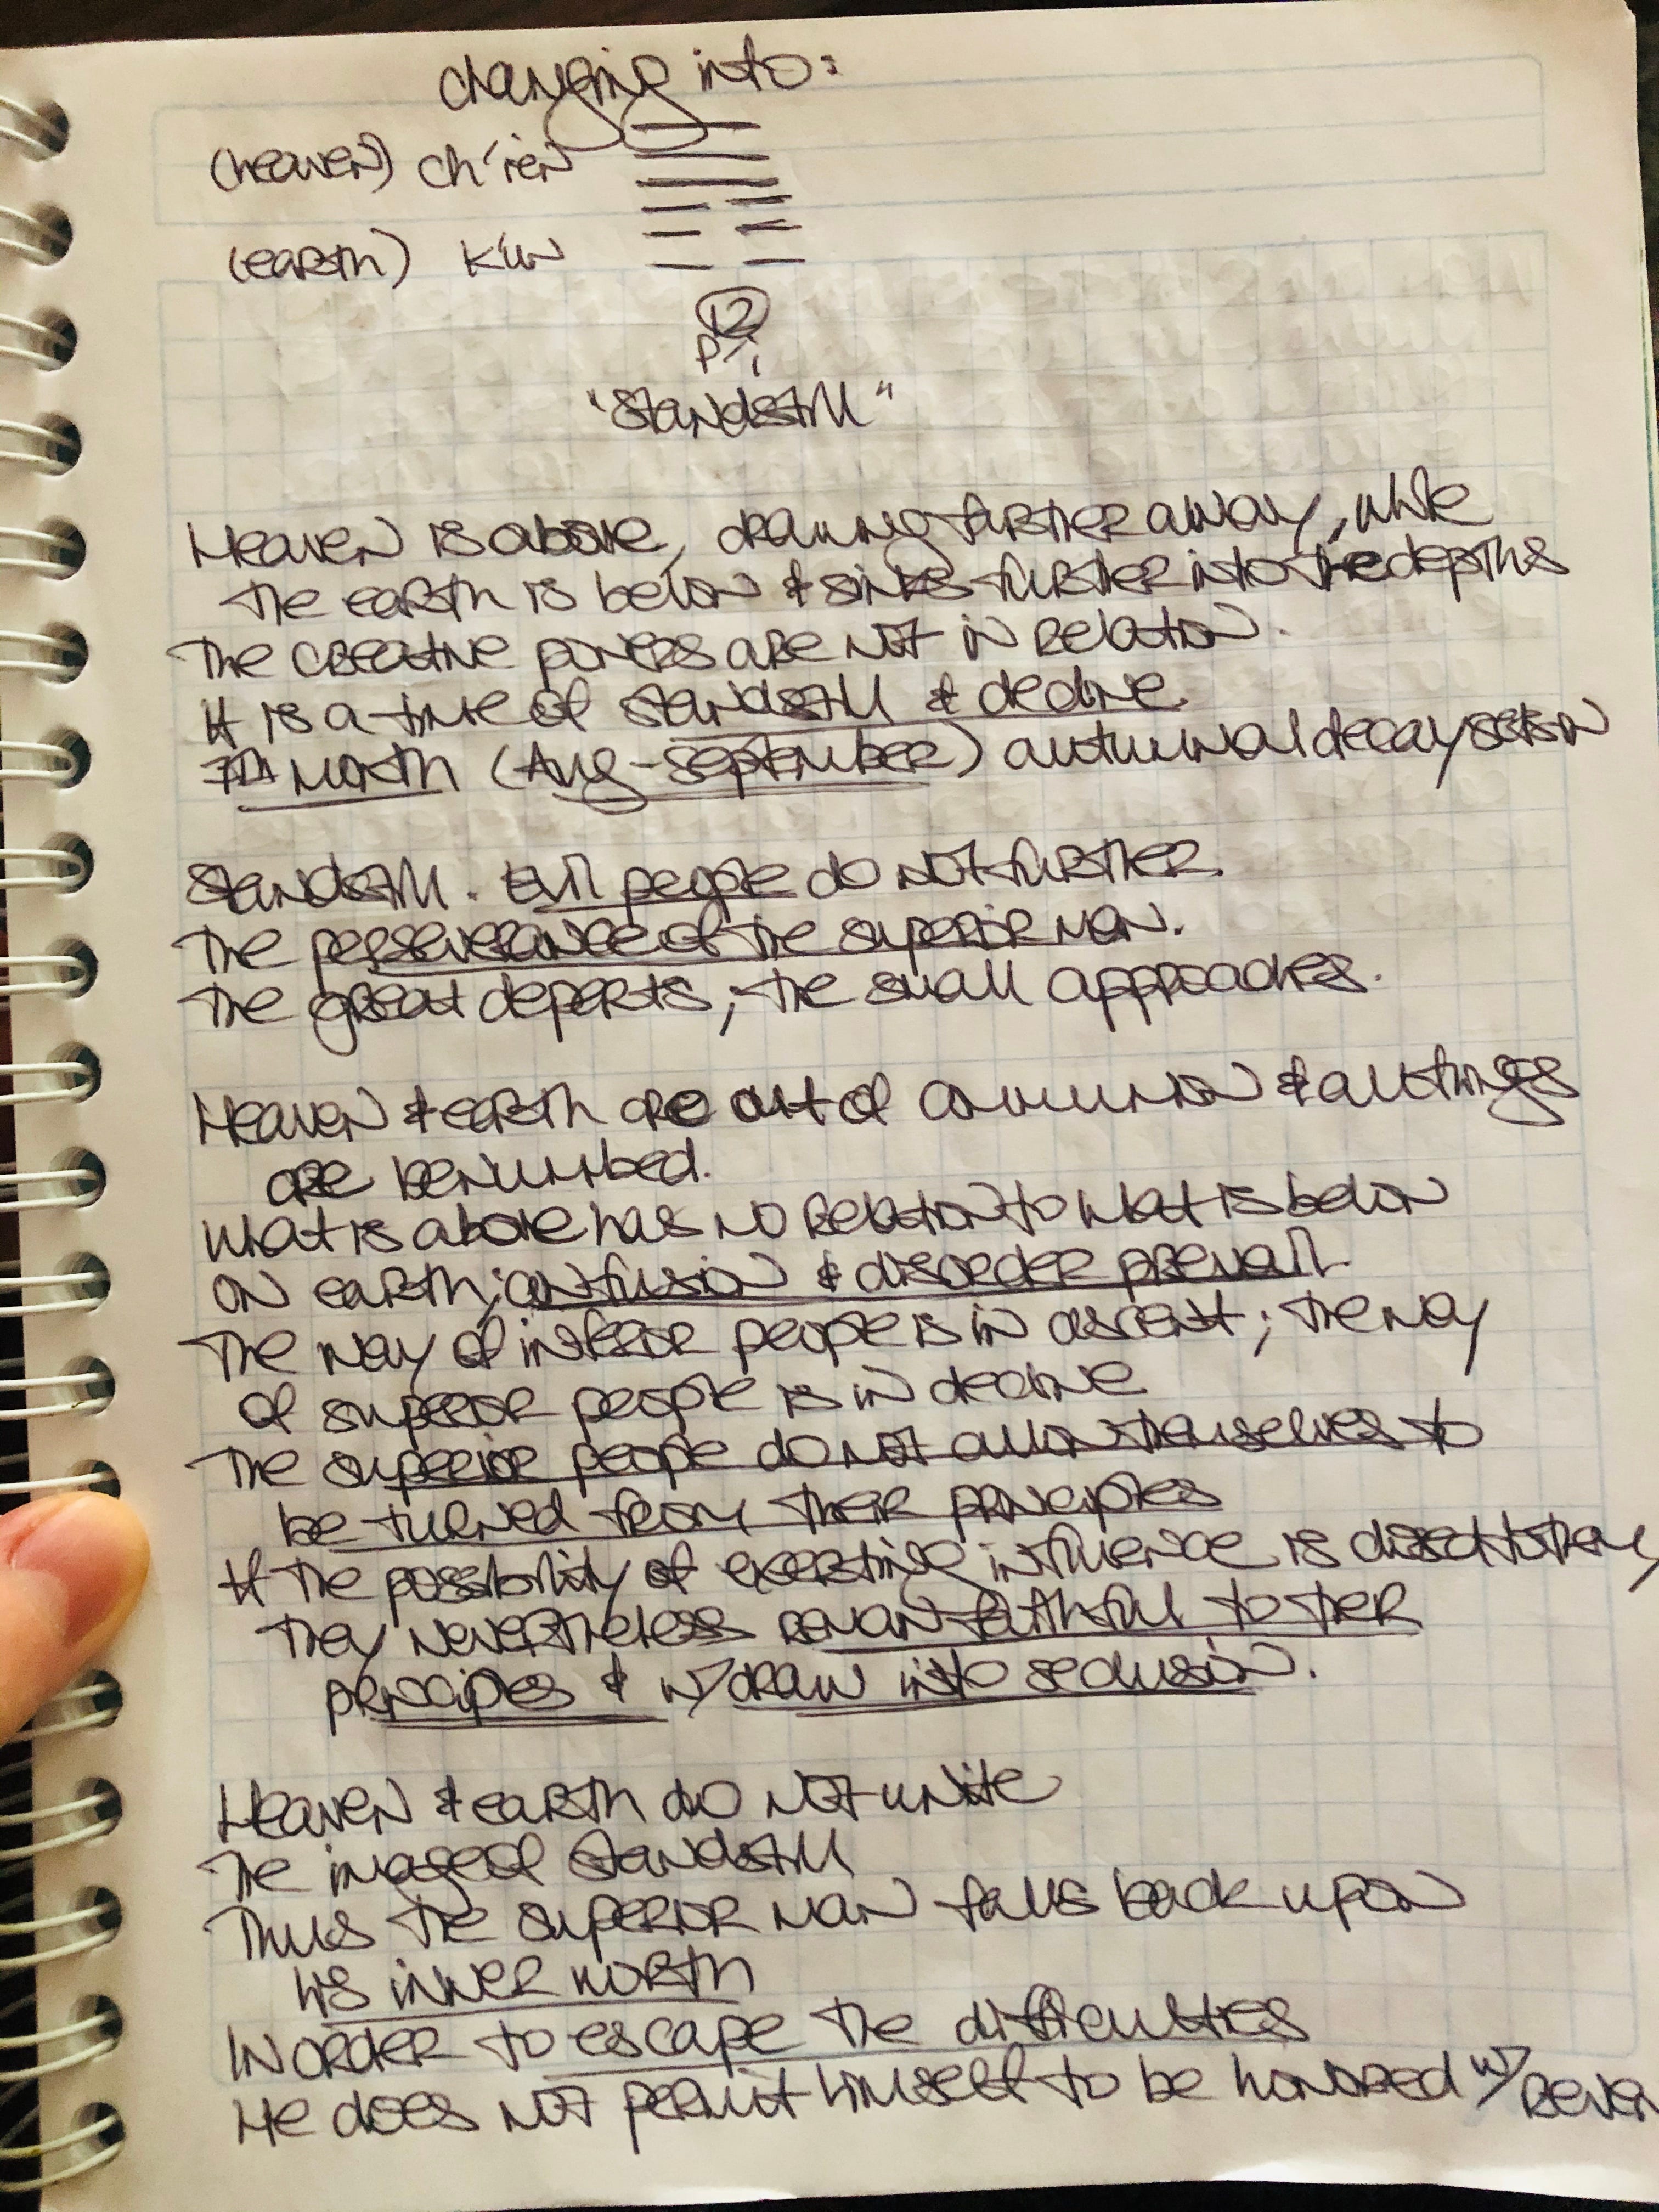 changing into:
(heaven) ch'ien
(earth) K'un
12
P'i
"Standstill"
Heaven is above, drawing farther away, while
the earth is below & sinks further into the depths
The creative powers are not in relation.
It is a time of standstill & decline
7th month (Aug-September) autumnal decay sets in
Standstill. Evil people do not further.
The perseverance of the superior man.
The great departs; the small approaches.
Heaven & earth are out of communion & all things
are benumbed.
What is above has no relation to what is below
On earth, confusion & disorder prevail
The way of inferior people is in ascent; the way
of superior people is in decline
The superior people do not allow themselves to
be turned from their principles
If the possibility of exerting influence is closed to them,
they nevertheless remain faithful to their
principles & w/draw into seclusion.
Heaven & earth do not unite
The image of standstill
Thus the superior man falls back upon
his inner worth
In order to escape the difficulties
He does not permit himself to be honored w/ reven